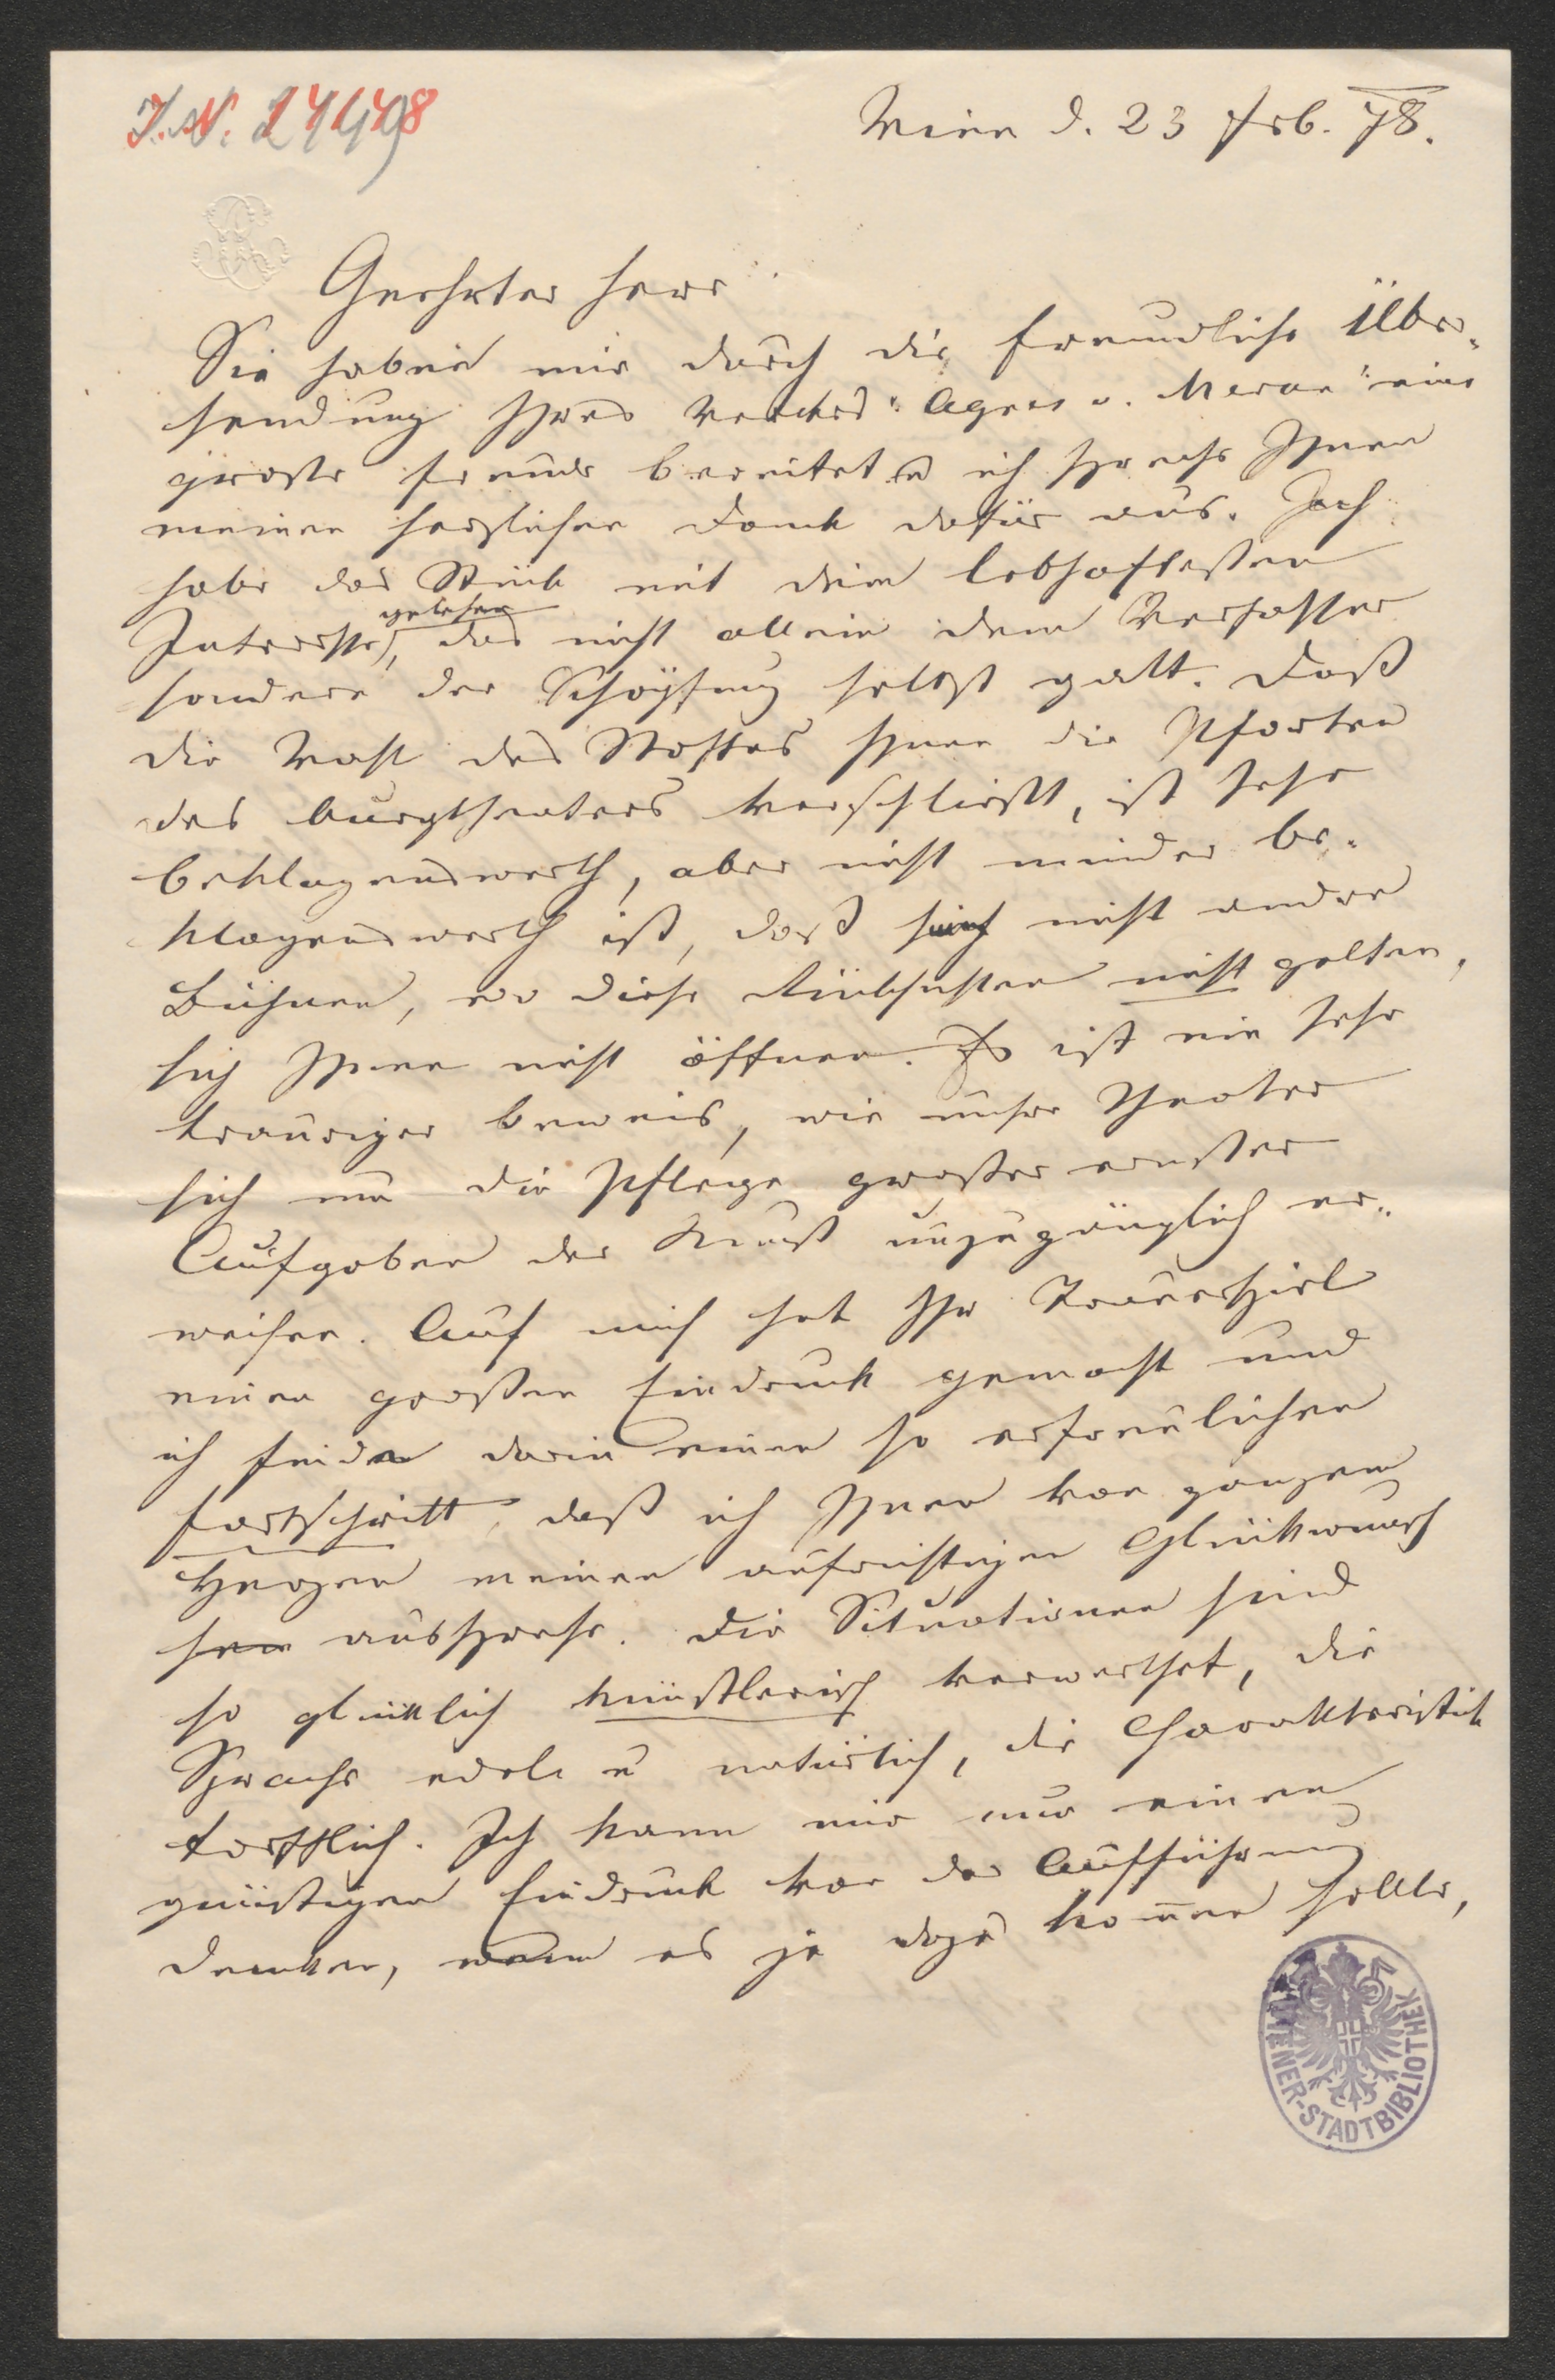 J.N. 27448
Wien d. 23 Feb. 78.
Geehrter Herr
Sie haben mir durch die freundliche Über-
sendung Ihres Werkes "Agnes v. Meran" eine
große Freude bereitet u ich spreche Ihnen
meinen herzlichen Dank dafür aus. Ich
habe das Stück mit dem lebhaftesten
gelesen
Interesse, das nicht allein dem Verfasser
sondern der Schöpfung selbst galt. Daß
die Wahl des Stoffes Ihnen die Pforten
des Burgtheaters verschließt, ist sehr
beklagenswerth, aber nicht minder be-
klagenswerth ist, daß nicht andre
Bühnen, wo diese Rücksichten nicht gelten,
sich Ihnen nicht öffnen. Es ist ein sehr
trauriger Beweis, wie unsre Theater
sich um die Pflege großer ernster
Aufgaben der Kunst unzugänglich er-
weisen. Auf mich hat Ihr Trauerspiel
einen großen Eindruck gemacht und
ich finde darin einen so erfreulichen
Fortschritt, daß ich Ihnen von ganzem
Herzen meinen aufrichtigen Glückwunsch
ausspreche. Die Situationen sind
so glücklich künstlerisch verwerthet, die
Sprache edel u natürlich, die Charakteristik
trefflich. Ich kann mir nur einen
günstigen Eindruck von der Aufführung
denken, wenn es je dazu kom̅en sollte,
WIENER-STADTBIBLIOTHEK